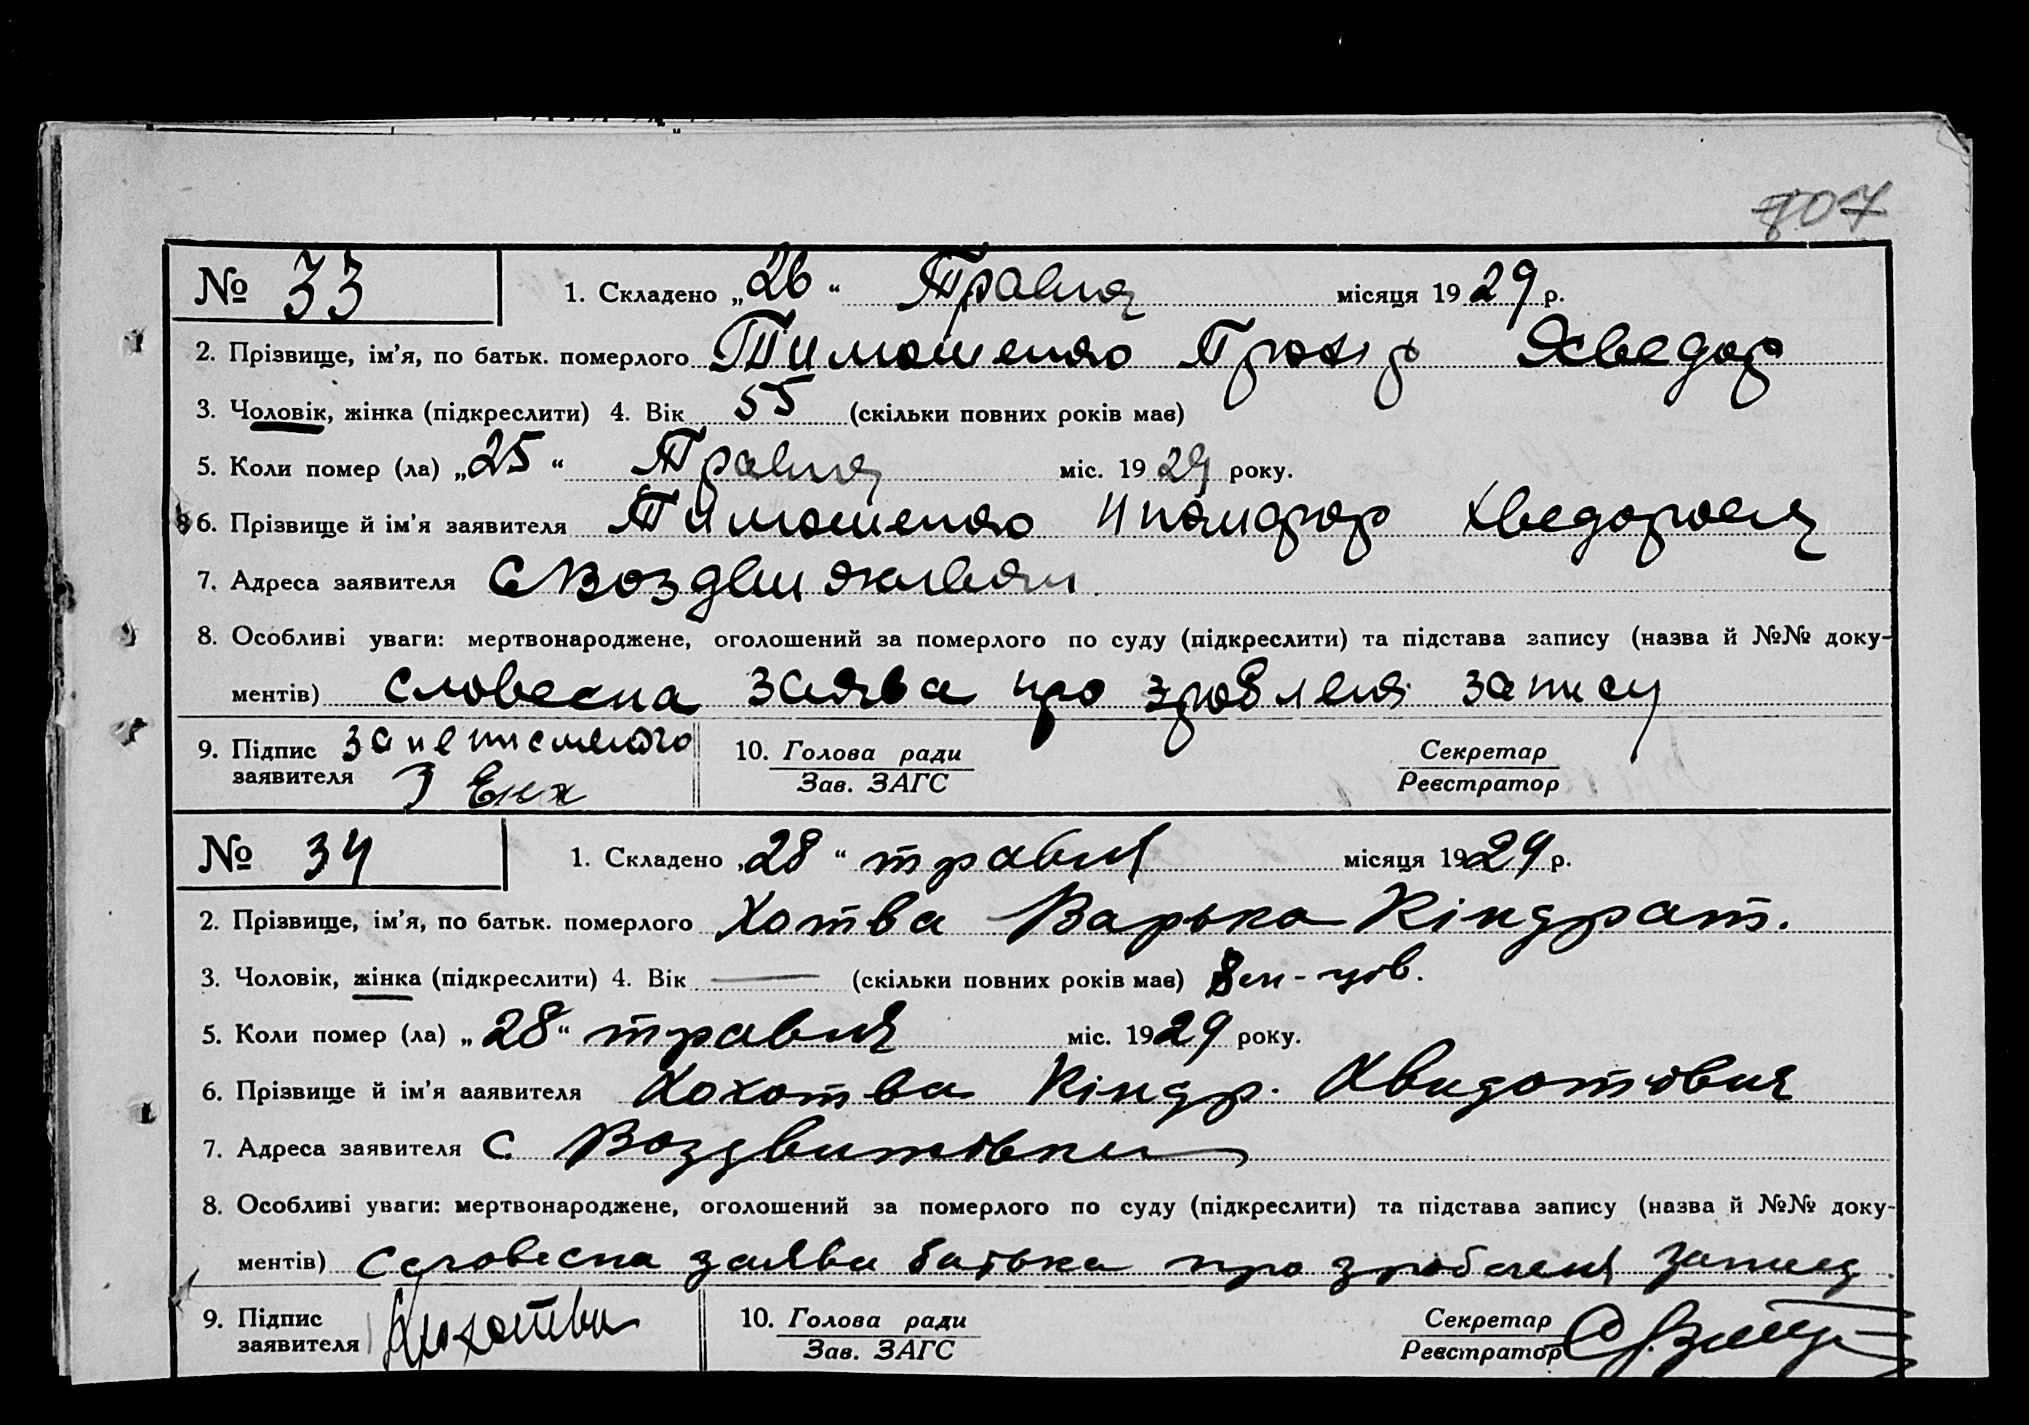 807
№ 33 1. Складено „26“ Травня місяця 1929 р.
2. Прізвище, ім'я, по батьк. померлого Тимошенко Прохор Хведор
3. Чоловік, жінка (підкреслити) 4. Вік 55 (скільки повних років має)
5. Коли помер (ла) „25“ Травня міс. 1929 року.
6. Прізвище й ім'я заявителя Тимошенко Хведоровия
7. Адреса заявителя С Воздвижівки
8. Особливі уваги: мертвонароджене, оголошений за померлого по суду (підкреслити) та підстава запису (назва й №№ доку-
ментів) словесна заява про зробленя запису
9. Підпис за неписменого 10. Голова ради Секретар
заявителя Зав. ЗАГС Реєстратор
№ 34 1. Складено „28“ травня місяця 1929 р.
2. Прізвище, ім'я, по батьк. померлого Хотва Варька Кіндрат.
3. Чоловік, жінка (підкреслити) 4. Вік — (скільки повних років має)
5. Коли помер (ла) „28“ травня міс. 1929 року.
6. Прізвище й ім'я заявителя Хохотва Кіндр.
7. Адреса заявителя с. Воздвитівки
8. Особливі уваги: мертвонароджене, оголошений за померлого по суду (підкреслити) та підстава запису (назва й №№ доку-
ментів) Словесна заява батька про зробленя запису
9. Підпис 10. Голова ради Секретар
заявителя Зав. ЗАГС Реєстратор